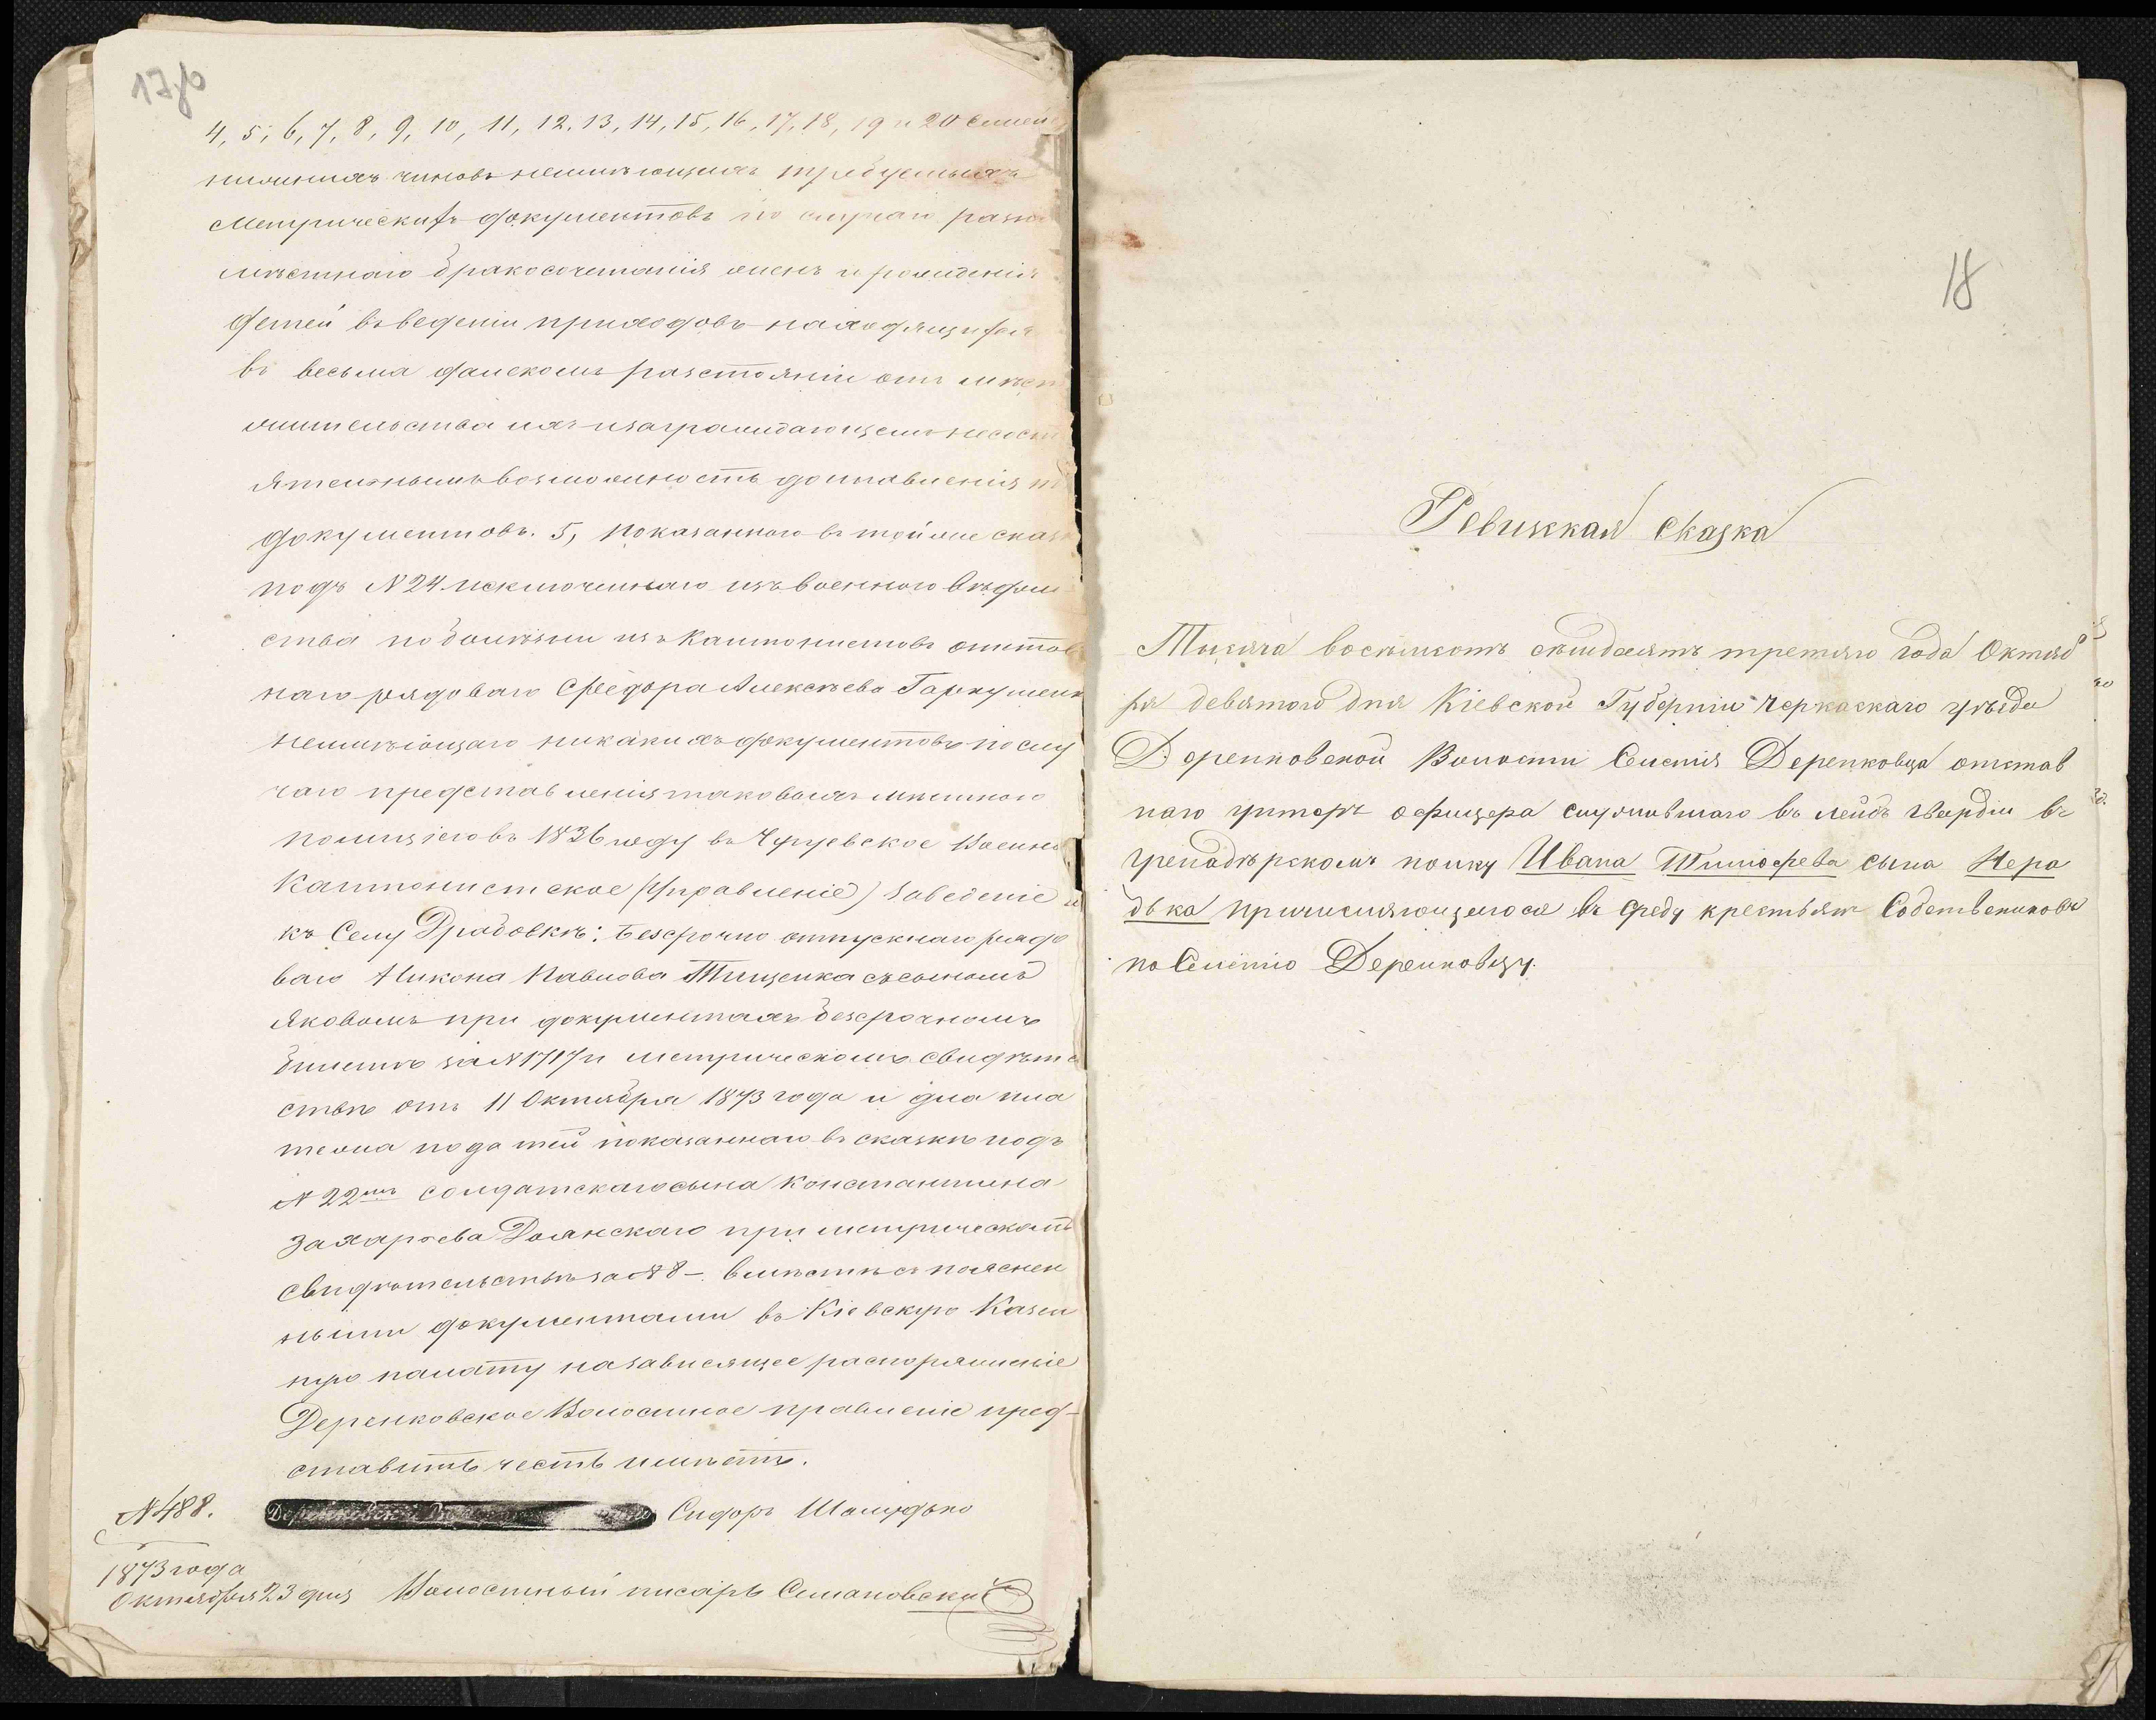 17об
4, 5, 6, 7, 8, 9, 10, 11, 12, 13, 14, 15, 16, 17, 18, 19 и 20 семей
нижнихъ чиновъ неимѣющихъ требуемыхъ
Метрическихъ документовъ по случаю разно
мѣстнаго бракосочетанія женъ и рожденія
детей въ веденіи приходовъ находящихся
въ весьма далекомъ разстояніи отъ мѣст
жительства ихъ изаграждающемъ несост
ятельнымъ возможность доставленія
документовъ. 5, показанного въ той же сказк
подъ № 24 исключеннаго изъ военного вѣдом
ства по болѣзни изъ Кантонистовъ отстав
наго рядоваго Федора Алексѣева Гаркушенк
неимѣющаго никакихъ документовъ по слу
чаю представленія таковыхъ мѣстною
полиціею въ 1836 году въ Чугуевское Военно
Кантонистское (Управленіе) Заведеніе и
къ Селу Драбовкѣ: Безсрочно отпускнаго рядо
ваго Никона Павлова Тищенка съ сыномъ
Яковомъ при документахъ безсрочномъ
билетѣ за № 1717 и метрическомъ свидѣтел
ствѣ отъ 11 Октября 1873 года и для пла
тежа податей показаннаго въ сказкѣ подъ
№ 22мъ солдатскаго сына Константина
Захарьева Должанскаго при метрическомъ
свидѣтельствѣ за № 8 – вмѣстѣ съ пояснен
ными документами въ Кіевскую Казен
ную палату на зависящее распоряженіе
Деренковское Волостное правленіе пред-
ставить честь имѣетъ.
№ 488.
Деренковскій Сидоръ Шолудько
1873 года
Октября 23 дня
Волостный писарь Симановскій
18
Ревизкая Сказка
Тысяча восѣмсотъ сѣмдесятъ третяго года Октяб
ря девятого дня Кіевской Губерніи Черкаскаго уѣзда
Деренковской Волости Селенія Деренковца отстав
наго унтеръ офицера служившаго въ лейбъ гвардіи въ
гренадѣрскомъ полку Ивана Тимофева сына Неро
дька причисляющегося въ среду крестьянъ Собственниковъ
по Селенію Деренковцу.